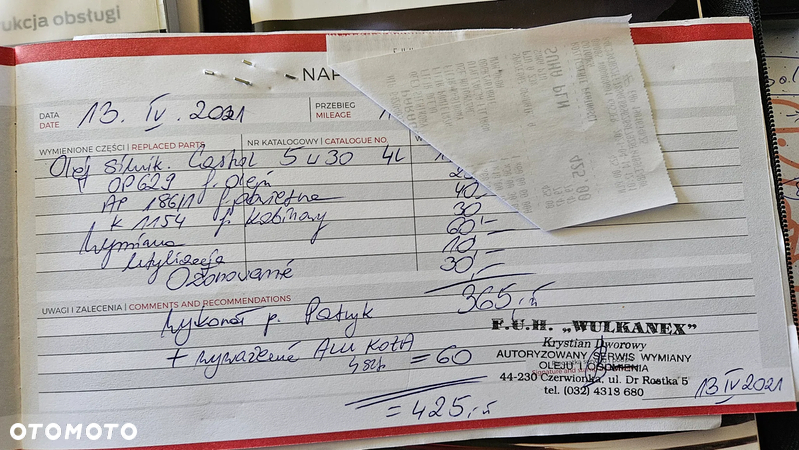 ukcja obsługi
NAP
DATA
DATE
13. IV. 2021
PRZEBIEG
MILEAGE
WYMIENIONE CZĘŚCI | REPLACED PARTS
NR KATALOGOWY | CATALOGUE NO.
Olej silnik. Castrol 5W30 4L
OP629 f. oleju
40
AP 186/1 f. powietrza
30
K 1154 f. kabinowy
60,-
Wymiana
10,-
Utylizacja
30,-
Ozonowanie
365,-
SUMA PLN
425,00
UWAGI I ZALECENIA | COMMENTS AND RECOMMENDATIONS
wykonał p. Patryk
+ wyważenie ALU KOŁA
4 szt = 60
= 425,-
F.U.H. „WULKANEX”
Krystian Dworowy
AUTORYZOWANY SERWIS WYMIANY
OLEJU I OGUMIENIA
44-230 Czerwionka, ul. Dr Rostka 5
tel. (032) 4318 680
13 IV 2021
OTOMOTO